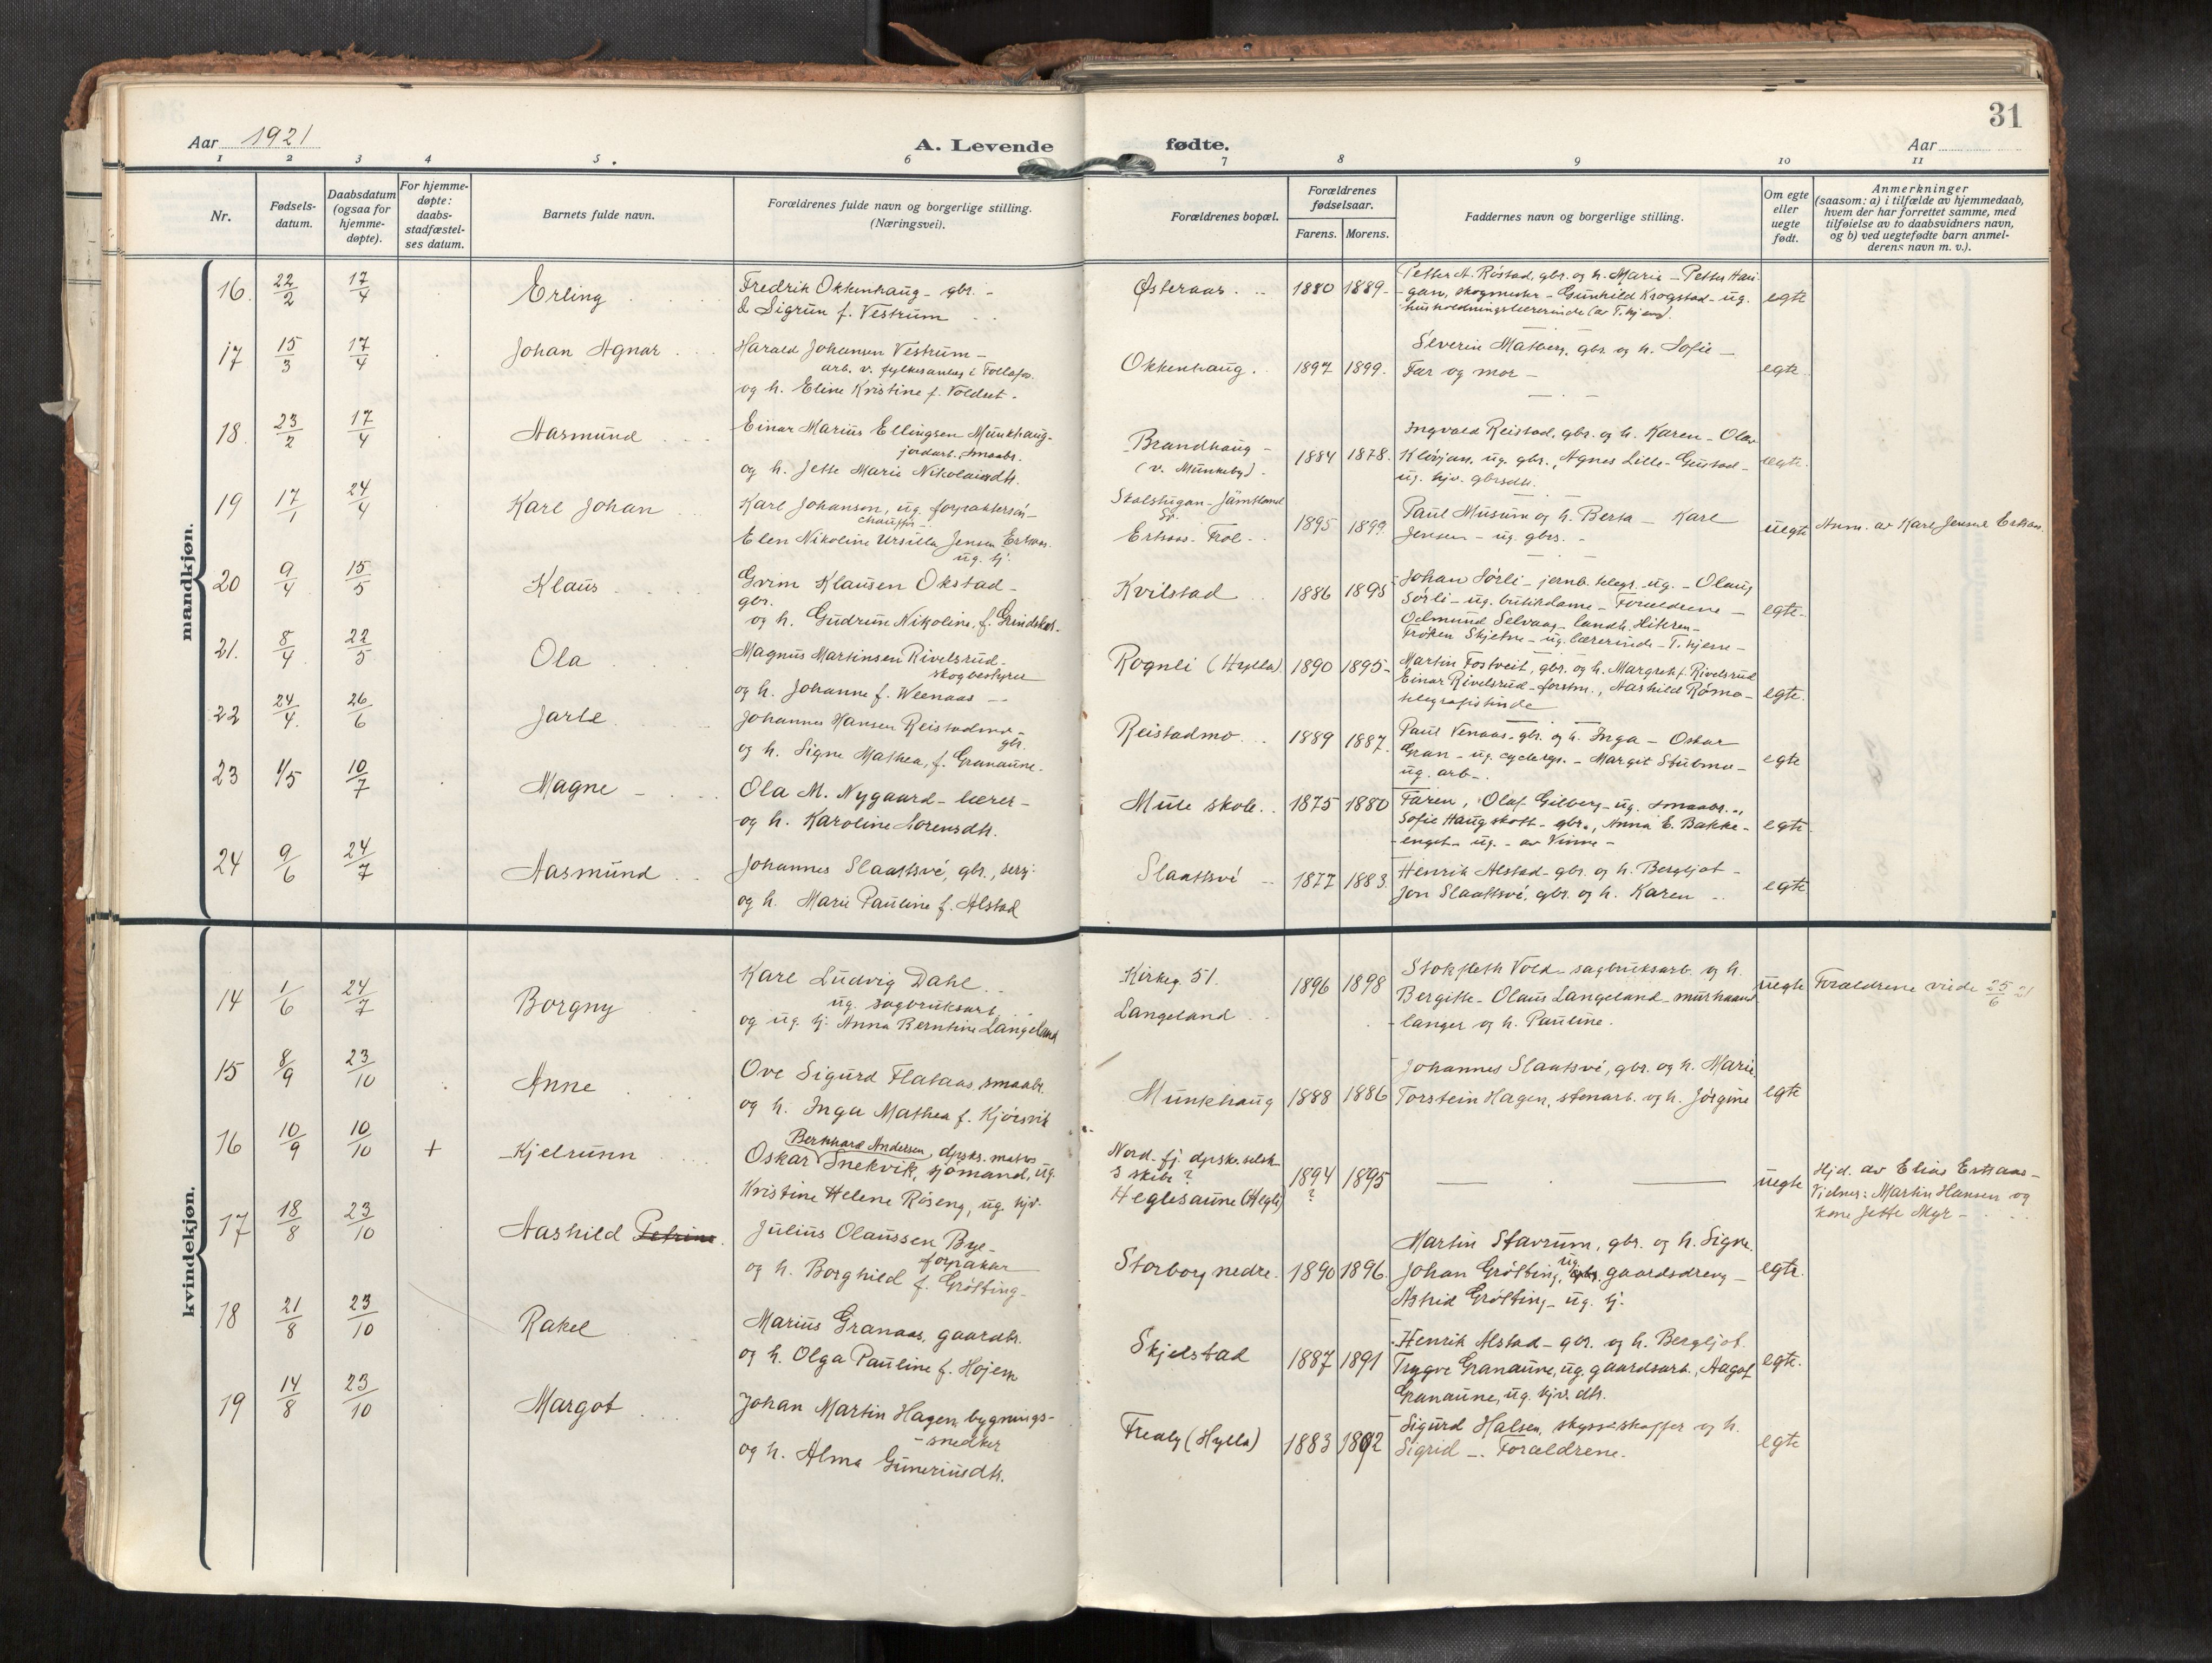 31
Aar 1921
A. Levende fødte.
Aar
1 2 3 4 5 6 7 8 9 10 11
Nr.
Fødsels-
datum.
Daabsdatum
(ogsaa for
hjemme-
døpte).
For hjemme-
døpte:
daabs-
stadfæstel-
ses datum.
Barnets fulde navn.
Forældrenes fulde navn og borgerlige stilling.
(Næringsvei).
Forældrenes bopæl.
Forældrenes
fødselsaar.
Farens. Morens.
Faddernes navn og borgerlige stilling.
Om egte
eller
uegte
født.
Anmerkninger
(saasom: a) i tilfælde av hjemmedaab,
hvem der har forrettet samme, med
tilføielse av to daabsvidners navn,
og b) ved uegtefødte barn anmel-
derens navn m. v.).
mandkjøn.
16. 22/2 17/4 Erling
Fredrik Okkenhaug - gbr. -
& Sigrun f. Vestrum
Østeraas. 1880 1889
Petter A. Røstad, gbr. og h. Marie - Petter Hau-
gan, skogmester - Gunhild Krogstad - ug.
husholdningslærerinde
egte
17 15/3 17/4 Johan Agnar
Harald Johansen Vestrum -
arb. v. fylkesanlæg i Follafos.
og h. Eline Kristine f. Voldset.
Okkenhaug. 1897 1899.
Severin Matberg, gbr. og h. Sofie -
Far og mor -
egte
18. 23/2 17/4 Aasmund
Einar Marius Ellingsen Munkhaug -
jordarb. smaabr.
og h. Jette Marie Nikolaisdtr.
Brandhaug -
(v. Munkeby). 1884 1878.
Ingvald Reistad, gbr. og h. Karen - Olav
ug. gbr., Agnes Lille-Gustad -
ug. hjv. gbrsdtr.
egte.
19 17/1 24/4 Karl Johan
Karl Johansen, ug. forpaktersøn -
chauffør -
Elen Nikoline Ursilla Jensen Ertsaas.
ug. tj.
Skalstugan - Jämtland
Sv.
Ertsaas - Frol - 1895 1899.
Paul Musum og h. Berta - Karl
Jensen - ug. gbrs. -
uegte
Anm. av Karl Jensen Ertsaas
20 9/4 15/5 Klaus
Grim Klausen Okstad -
gbr.
og h. Gudrun Nikoline, f. Grindskar.
Kvilstad 1886 1895
Johan Sørli - jernb. telegr. ug. - Olaug
Sørli - ug. butikdame - Forældrene -
Oelmund Selvaag - landh. Hitren -
Frøken Skjetne - ug. lærerinde -
egte.
21. 8/4 22/5 Ola
Magnus Martinsen Rivelsrud -
skogbestyrer
og h. Johanne f. Weenaas -
Rognli (Hylla). 1890 1895-
Martin Fostveit, gbr. og h. Margreth f. Rivelsrud
Einar Rivelsrud - forstm., Aashild Rømo -
telegrafistinde
egte.
22 24/4 26/6 Jarle
Johannes Hansen Reistadmo -
gbr.
og h. Signe Mathea, f. Granaune.
Reistadmo 1889 1887.
Paul Venaas - gbr. og h. Inga - Oskar
Gran - ug. - Margit Stubmo -
ug. arb -.
egte
23 1/5 10/7 Magne -
Ola M. Nygaard - lærer -
og h. Karoline Lorensdtr.
Mule skole. 1875 1880
Faren, Olaf Gilberg - ug. smaabr.,
Sofie Haugskott - gbr., Anna E. Bakke-
enget - ug. - av Vinne -
egte.
24 9/6 24/7 Aasmund
Johannes Slaattsvé, gbr., serj.
og h. Marie Pauline f. Alstad
Slaattsvé - 1877 1883.
Henrik Alstad - gbr. og h. Bergljot -
Jon Slaattsvé, gbr. og h. Karen -
egte
kvindekjøn.
14 1/6 24/7 Borgny
Karl Ludvig Dahl
ug. sagbruksarb.
og ug. tj. Anna Berntine Langeland
Kirkeg. 51.
Langeland 1896 1898
Stokfleth Vold - sagbruksarb. og h.
Bergitte - Olaus Langeland - murhaand-
langer og h. Pauline.
uegte
Forældrene viede 25/6 21
15 8/9 23/10 Anne
Ove Sigurd Flataas, smaabr.
og h. Inga Mathea f. Kjörsvik
Munkhaug 1888 1886
Johannes Slaattsvé, gbr. og h. Marie.
Torstein Hagen, stenarb. og h. Jørgine
egte
16 10/9 10/10 + Kjelrunn
Bernhard Andersen, dpsks. matros
Oskar Snekvik, sjömand, ug.
Kristine Helene Røseng, ug. hjv.
Nord-fj. dpsks. selsk -
s skibe ?
Heglesaune (Hegle) 1894 ? 1895
uegte
Hjd. av Elias Ertsaas -
Vidner: Martin Hansen og
kone Jette Myr -
17 18/8 23/10 Aashild Petrine.
Julius Olaussen Bye -
forpakter
og h. Borghild f. Grötting -
Storborg nedre. 1890 1896.
Martin Stavrum, gbr. og h. Signe.
Johan Grötting, ug. gbr. gaardsdreng -
Astrid Grötting - ug. tj.
egte.
18 21/8 23/10 Rakel
Marius Granaas, gaardbr.
og h. Olga Pauline f. Hojem
Skjelstad 1887 1891
Henrik Alstad - gbr. og h. Bergljot.
Trygve Granaune, ug. gaardsarb., Aagot
Granaune, ug. hjv. dtr.
egte.
19 14/8 23/10 Margot
Johan Martin Hagen, bygnings-
-snedker
og h. Alma Guneriusdtr.
Fredly (Hylla) 1883 1892
Sigurd Halsen, skysseskaffer og h.
Sigrid -. Forældrene.
egte